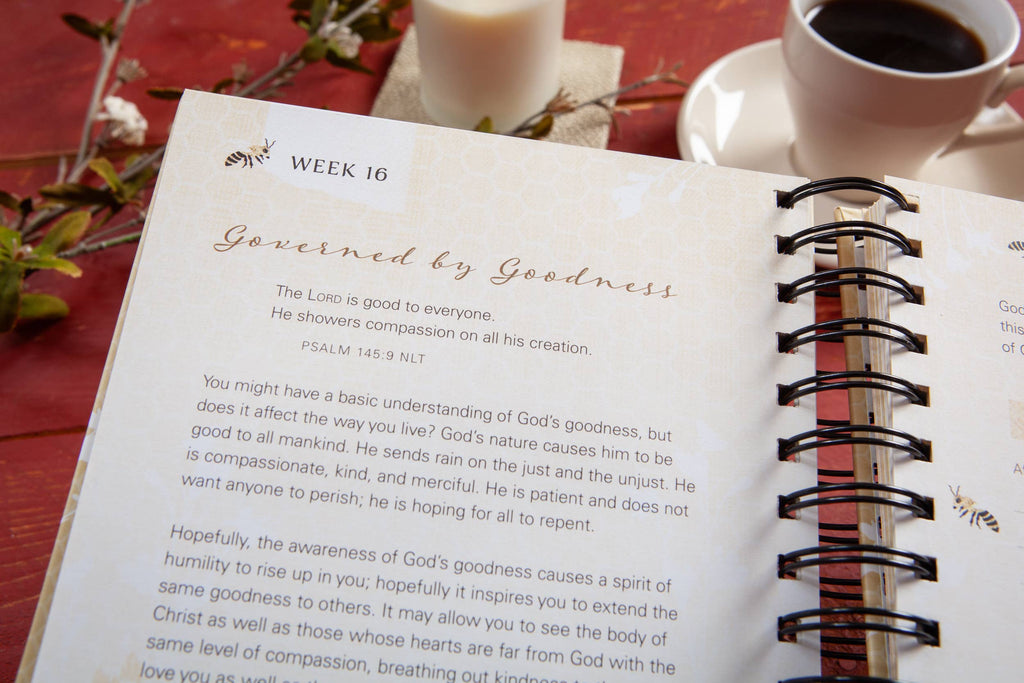 WEEK 16
Governed by Goodness
The LORD is good to everyone.
He showers compassion on all his creation.
PSALM 145:9 NLT
You might have a basic understanding of God's goodness, but
does it affect the way you live? God's nature causes him to be
good to all mankind. He sends rain on the just and the unjust. He
is compassionate, kind, and merciful. He is patient and does not
want anyone to perish; he is hoping for all to repent.
Hopefully, the awareness of God's goodness causes a spirit of
humility to rise up in you; hopefully it inspires you to extend the
same goodness to others. It may allow you to see the body of
Christ as well as those whose hearts are far from God with the
same level of compassion, breathing out kindness
love you as well as
this
of